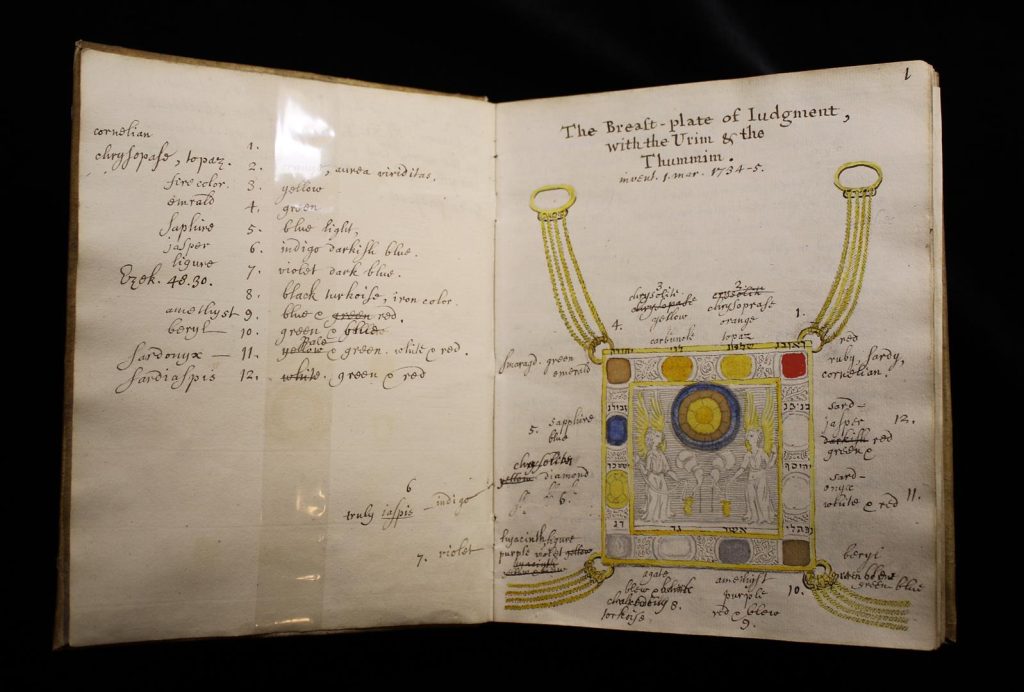 cornelian
1.
chrysopase, topaz. 2. , aurea viriditas.
fire color. 3. yellow
emrald 4. green
saphire 5. blue light,
jasper 6. indigo darkish blue.
ligure
7. violet dark blue.
Ezek. 48.30.
8. black turkoise, iron color.
amethyst 9. blue & green red.
beryl 10. green & blue
Pale
Sardonyx — 11. yellow & green. white & red.
Sardiaspis 12. white. green & red
6
truly iaspis — indigo
7. violet
1
The Breast-plate of Iudgment,
with the Urim & the
Thummim.
invent. 1. mar. 1734-5.
3
chrysolite
chrysopase
yellow
carbunck
2
chrysolith
chrysoprase
orange
topaz
4.
1.
ראובן
שמעון
לוי
יהודה
smoragd. green
emerald
red
ruby, sardy,
cornelian.
זבולן
בנימן
5. sapphire
blue
sard-
jasper 12.
darkish red
green &
יששכר
יוסף
chrysolite
yellow diamond
6.
sard-
onyx 11.
white & red
דן
גד
אשר
נפתלי
hyacinth figure
purple violet yellow
beryl
green blew
green blue
10.
agate
blew & black
8.
torkoise.
amethist
purple
red & blew
9.